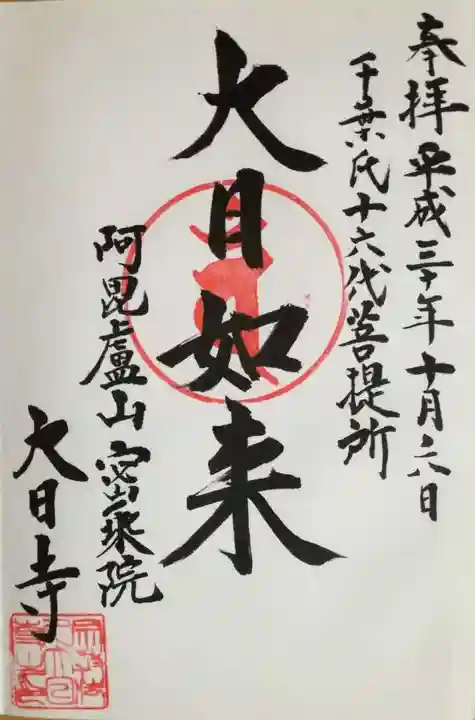 奉拝 平成三十年十月六日
千葉氏十六代菩提所
大日如来
阿毘盧山密乗院
大日寺